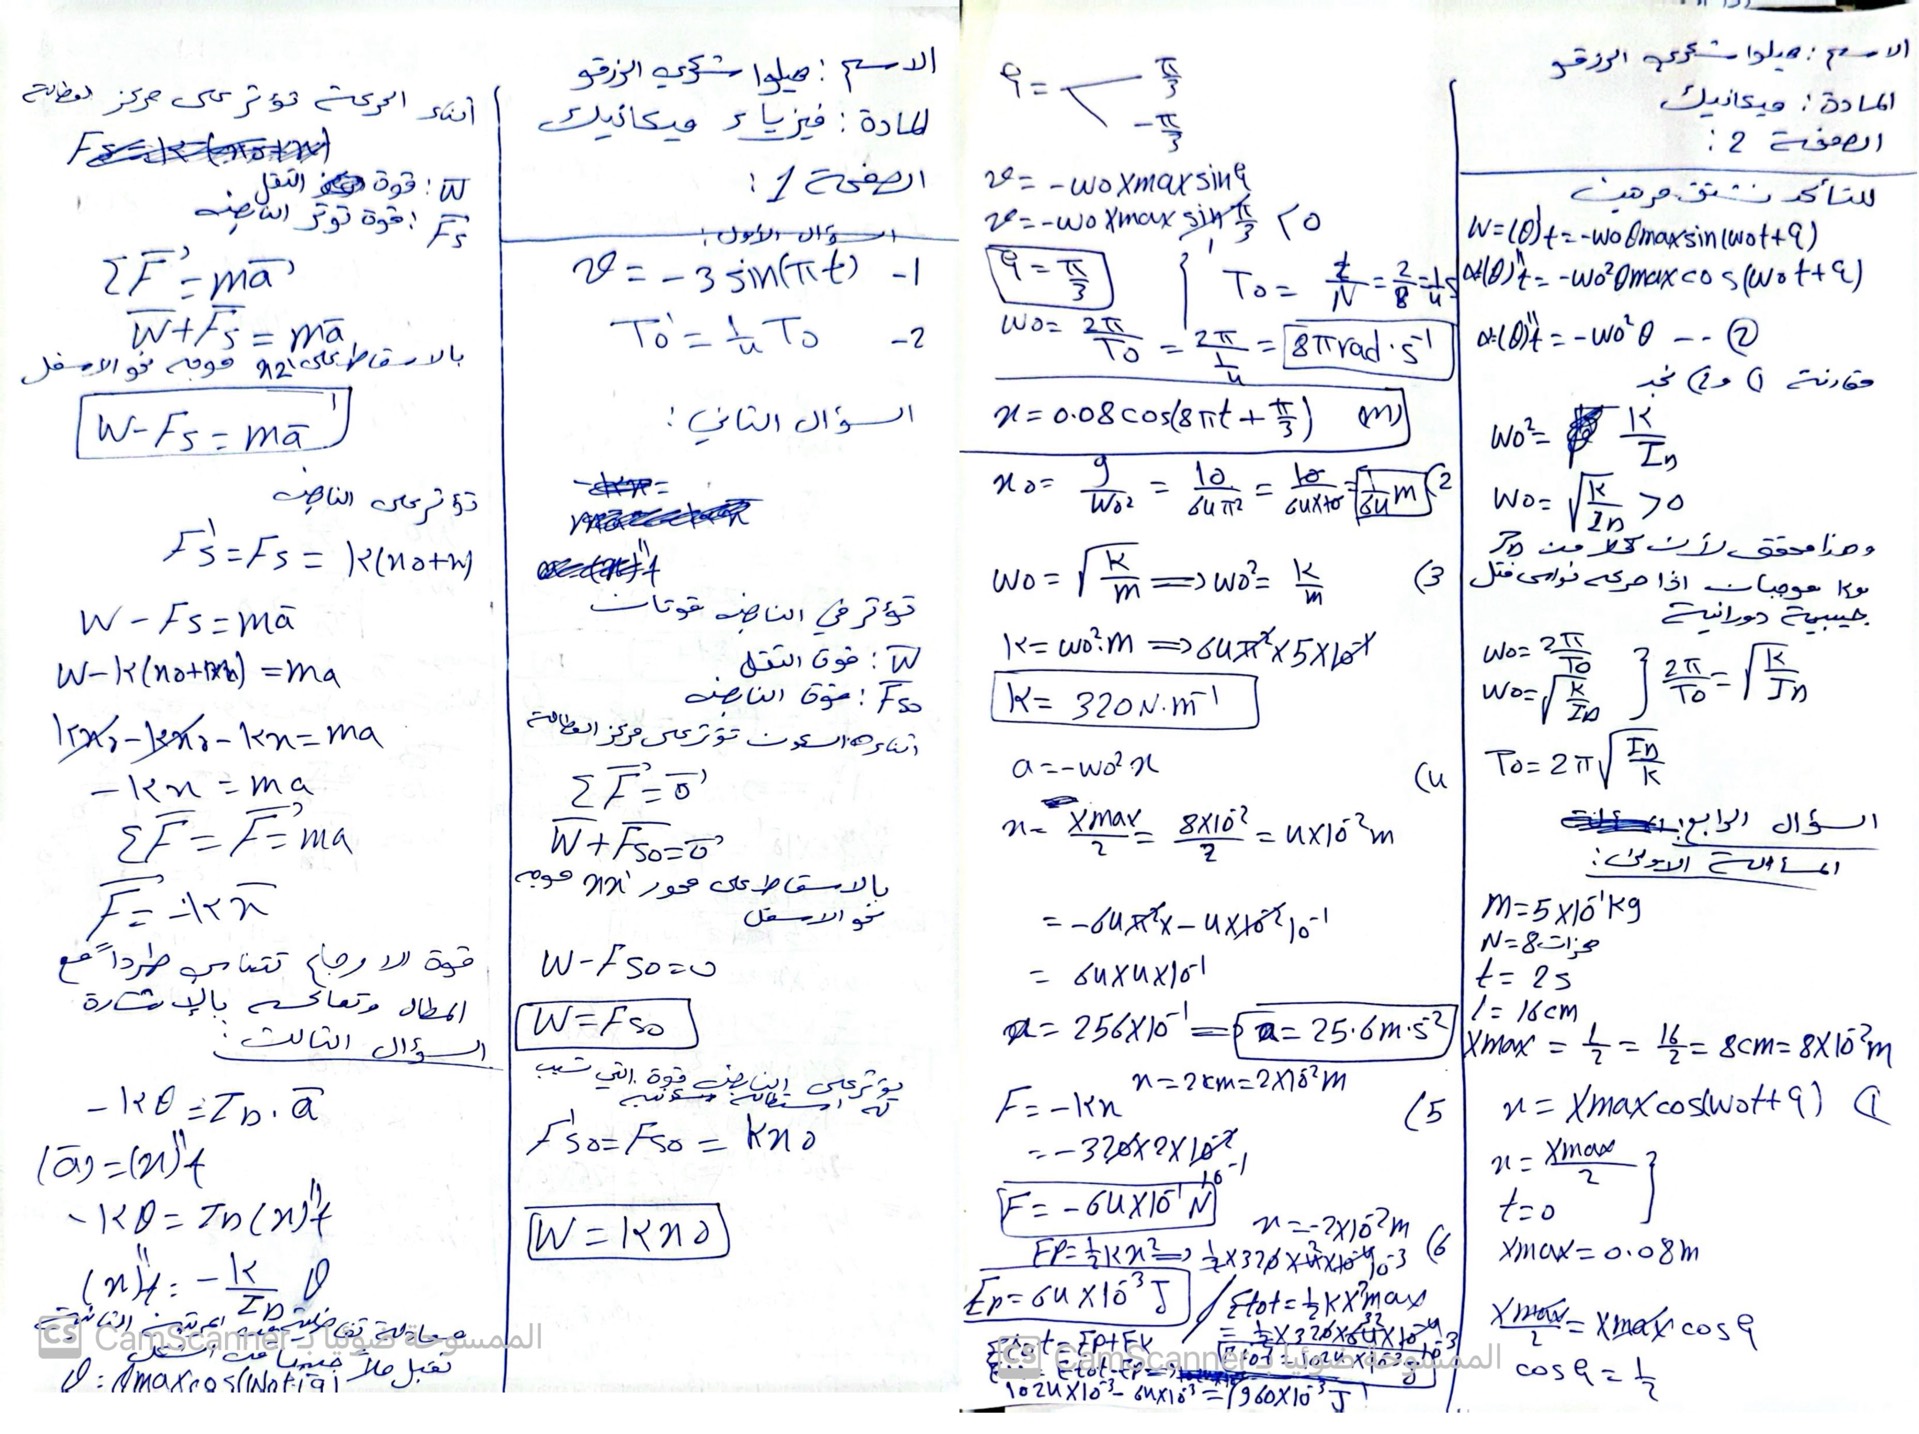 الاسم : هيلوا شكري الزرقو
المادة : فيزياء ميكانيك
الصفحة 1 :
السؤال الأول :
1- v = -3 sin(πt)
2- T₀' = 1/4 T₀
السؤال الثاني :
تؤثر في النابض قوتان
W : قوة الثقل
Fs₀ : قوة النابض
أثناء السكون تؤثر على مركز العطالة
ΣF = 0
W + Fs₀ = 0
بالاسقاط على محور xx' موجه
نحو الاسفل
W - Fs₀ = 0
W = Fs₀
يؤثر على النابض قوة التي تسبب
له استطالة
F's₀ = Fs₀ = kx₀
W = kx₀
أثناء الحركة تؤثر على مركز العطالة
W : قوة الثقل
Fs : قوة توتر النابض
ΣF = ma
W + Fs = ma
بالاسقاط على xx' موجه نحو الاسفل
W - Fs = ma
تؤثر على النابض
F's = Fs = k(x₀+x)
W - Fs = ma
W - k(x₀+x) = ma
kx₀ - kx₀ - kx = ma
-kx = ma
ΣF = F = ma
F = -kx
قوة الارجاع تتناسب طرداً مع
المطال وتعاكسه بالإشارة
السؤال الثالث :
-kθ = I_D . a
(a) = (x)''t
-kθ = I_D (x)''t
(x)''t = - k/I_D θ
معادلة تفاضلية من المرتبة الثانية
تقبل حلاً جيبياً من الشكل
θ = θmax cos(ω₀t+φ)
الاسم : هيلوا شكري الزرقو
المادة : ميكانيك
الصفحة 2 :
للتأكد نشتق مرتين
ω = (θ)'t = -ω₀ θmax sin(ω₀t+φ)
α = (θ)''t = -ω₀² θmax cos(ω₀t+φ)
α = (θ)''t = -ω₀² θ -- ②
مقارنة 1 و 2 نجد
ω₀² = k/I_D
ω₀ = √(k/I_D) > 0
وهذا محقق لأن كلا من I_D
و k موجبات اذا حركة نواس فتل
جيبية دورانية
ω₀ = 2π/T₀
ω₀ = √(k/I_D) } 2π/T₀ = √(k/I_D)
T₀ = 2π √(I_D/k)
السؤال الرابع :
المسألة الاولى :
m = 5×10⁻¹ kg
N = 8 هزات
t = 2s
l = 16cm
Xmax = l/2 = 16/2 = 8cm = 8×10⁻²m
1) x = Xmax cos(ω₀t+φ)
x = Xmax/2
t = 0
Xmax = 0.08m
Xmax/2 = Xmax cosφ
cosφ = 1/2
φ = π/3
-π/3
v = -ω₀ Xmax sinφ
v = -ω₀ Xmax sin π/3 < 0
φ = π/3
T₀ = t/N = 2/8 = 1/4 s
ω₀ = 2π/T₀ = 2π/(1/4) = 8π rad·s⁻¹
x = 0.08 cos(8πt + π/3) (m)
2) x₀ = g/ω₀² = 10/64π² = 10/64×10 = 1/64 m
3) ω₀ = √(k/m) ⇒ ω₀² = k/m
k = ω₀².m ⇒ 64π²×5×10⁻¹
k = 320 N.m⁻¹
4) a = -ω₀² x
x = Xmax/2 = 8×10⁻²/2 = 4×10⁻²m
= -64π² × -4×10⁻² 10⁻¹
= 64×4×10⁻¹
a = 256×10⁻¹ ⇒ a = 25.6 m·s⁻²
x = 2cm = 2×10⁻²m
5) F = -kx
= -320×2×10⁻²
10⁻¹
F = -64×10⁻¹ N
6) x = -2×10⁻²m
Ep = 1/2 kx² ⇒ 1/2×320×4×10⁻⁴ 10⁻³
Ep = 64×10⁻³ J
Etot = 1/2 k X²max
= 1/2×320×64×10⁻⁴
= 1024×10⁻³ J
Etot = Ep+Ek
Ek = Etot-Ep ⇒
1024×10⁻³ - 64×10⁻³ = 960×10⁻³ J
CS الممسوحة ضوئيا بـ CamScanner
CS الممسوحة ضوئيا بـ CamScanner